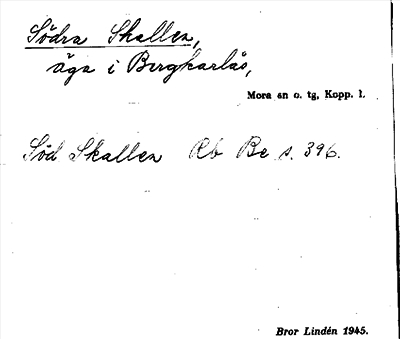 Södra Skallen,
äga i Bergkarlås,
Mora sn o. tg, Kopp. l.
Söd Skallen Rb Be s. 396.
Bror Lindén 1945.